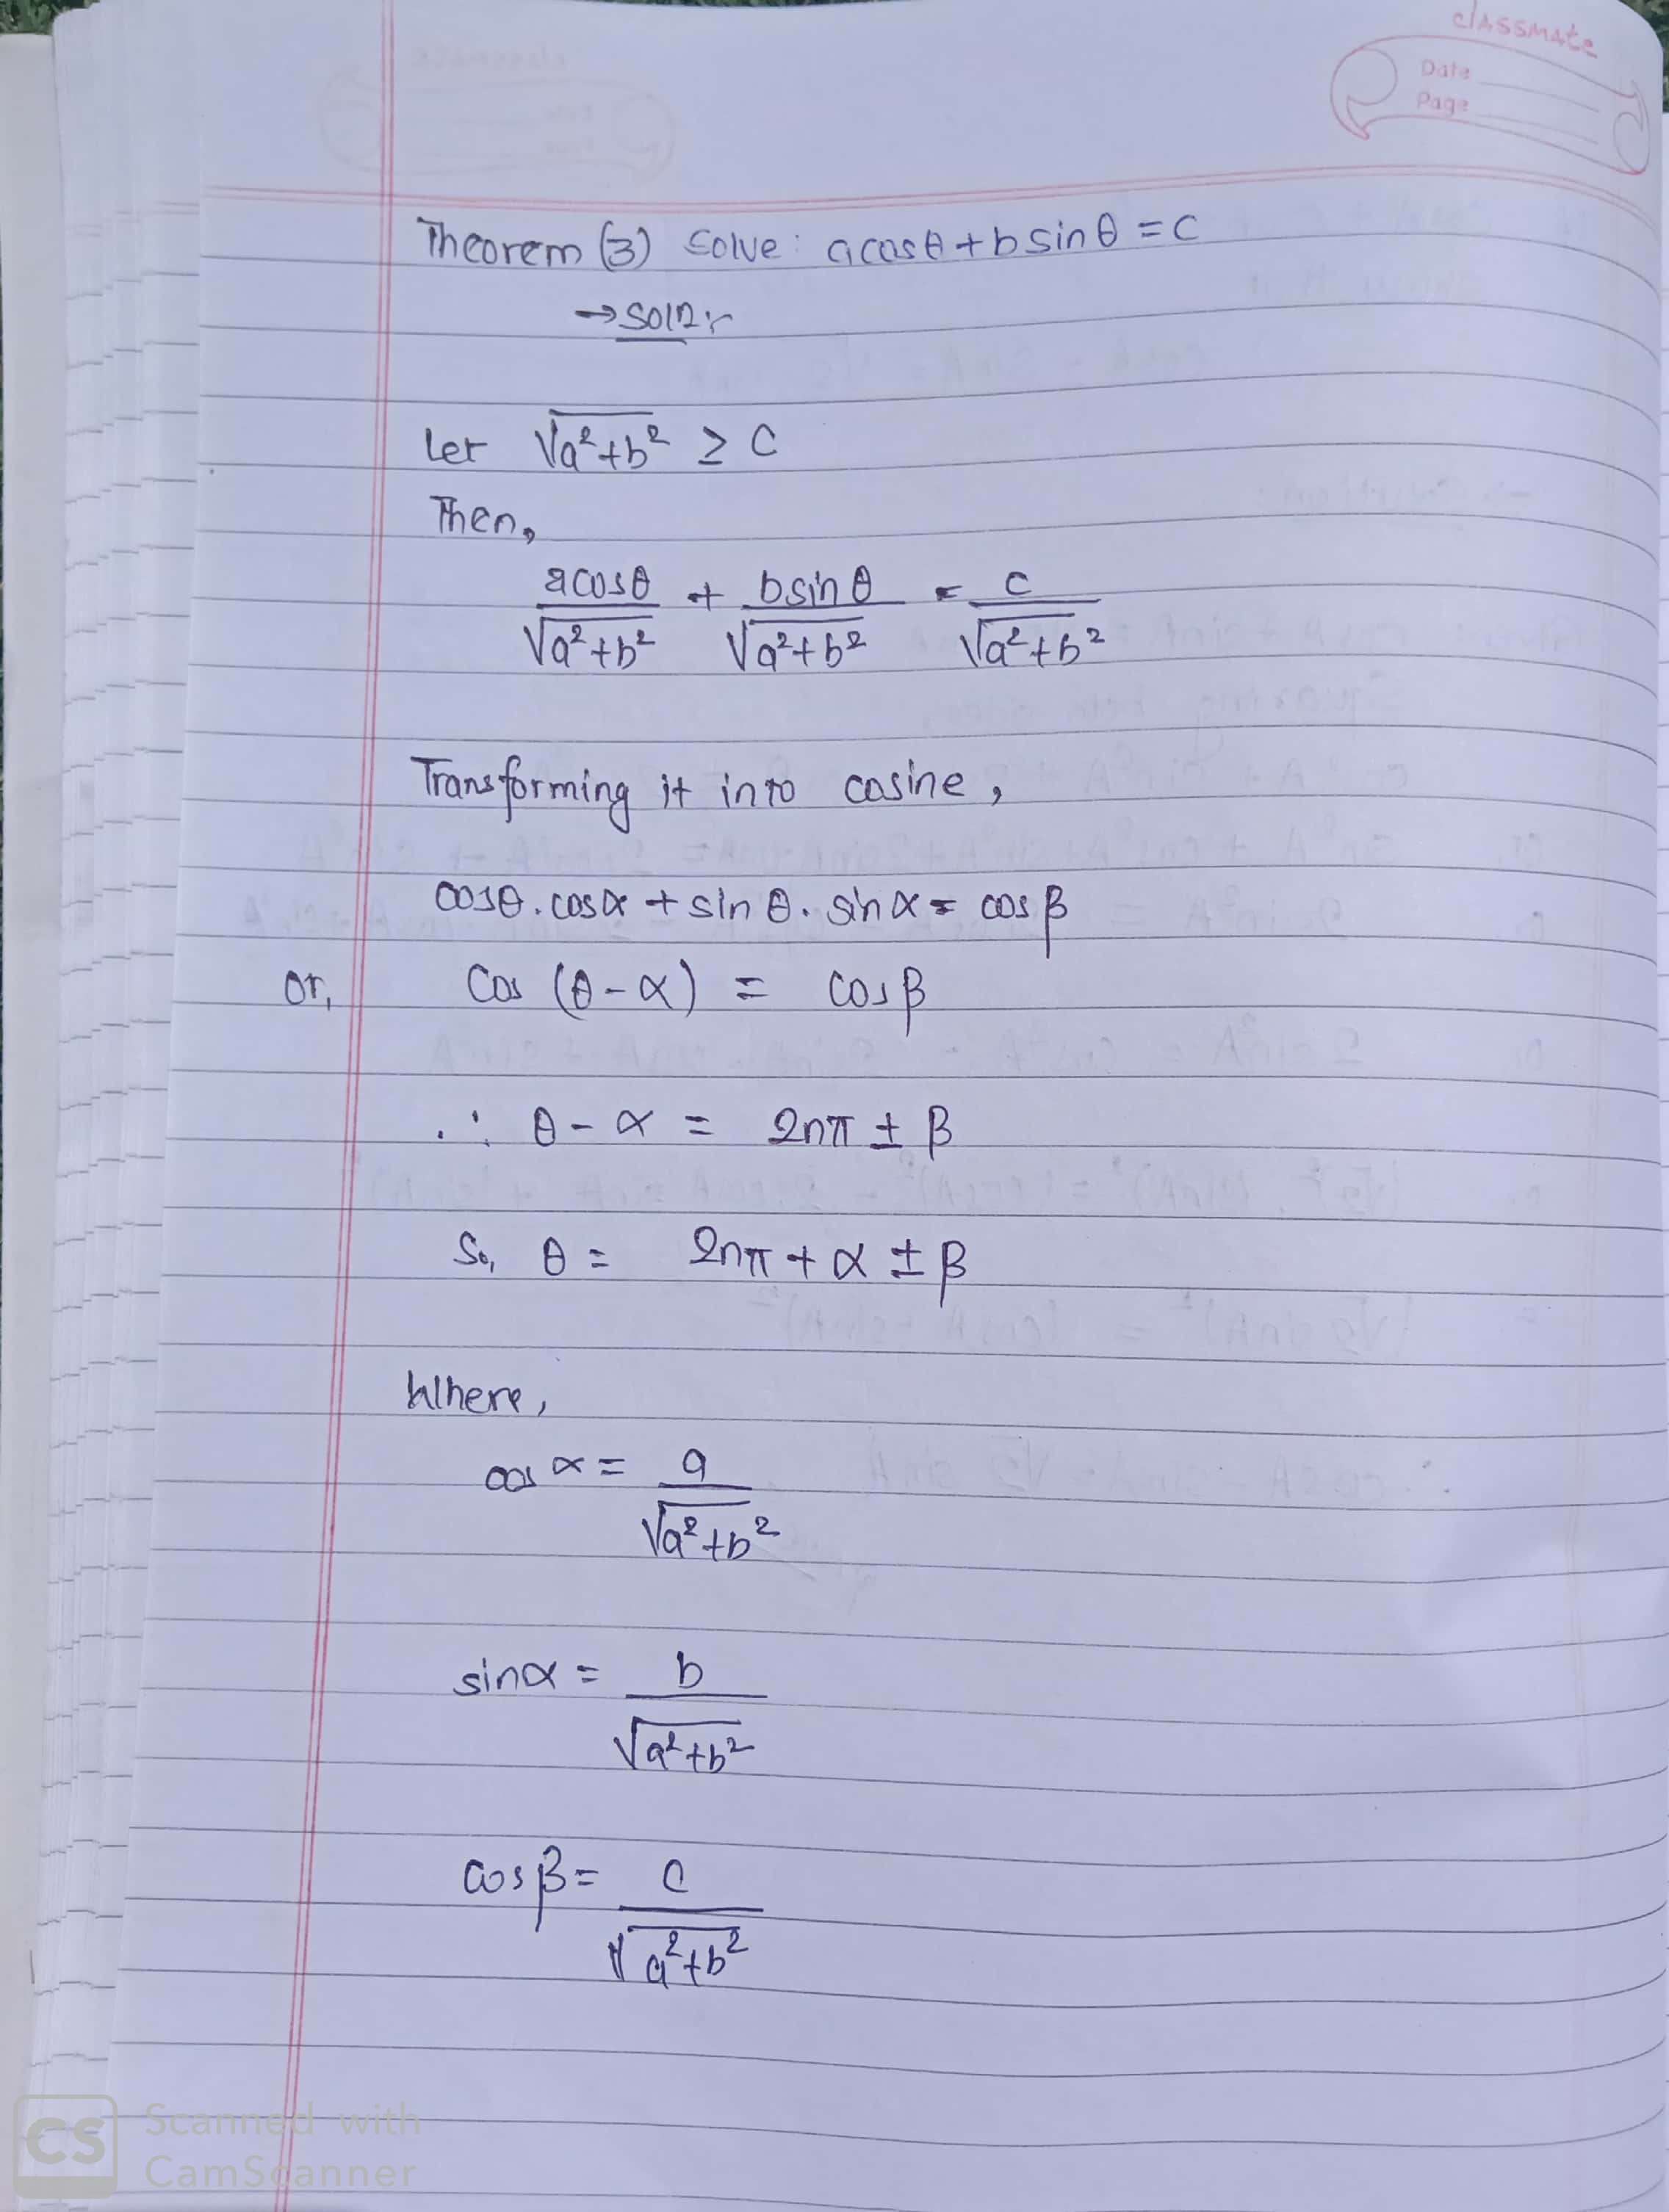 classmate
Date
Page
Theorem (3) Solve: acosθ + b sinθ = C
→ Soln:-
Let √a²+b² ≥ C
Then,
acosθ/√a²+b² + bsinθ/√a²+b² = c/√a²+b²
Transforming it into cosine,
cosθ.cosα + sinθ.sinα = cosβ
or, Cos (θ-α) = cosβ
∴ θ - α = 2nπ ± β
So, θ = 2nπ + α ± β
Where,
cos α = a/√a²+b²
sinα = b/√a²+b²
Cosβ = c/√a²+b²
CS Scanned with
CamScanner